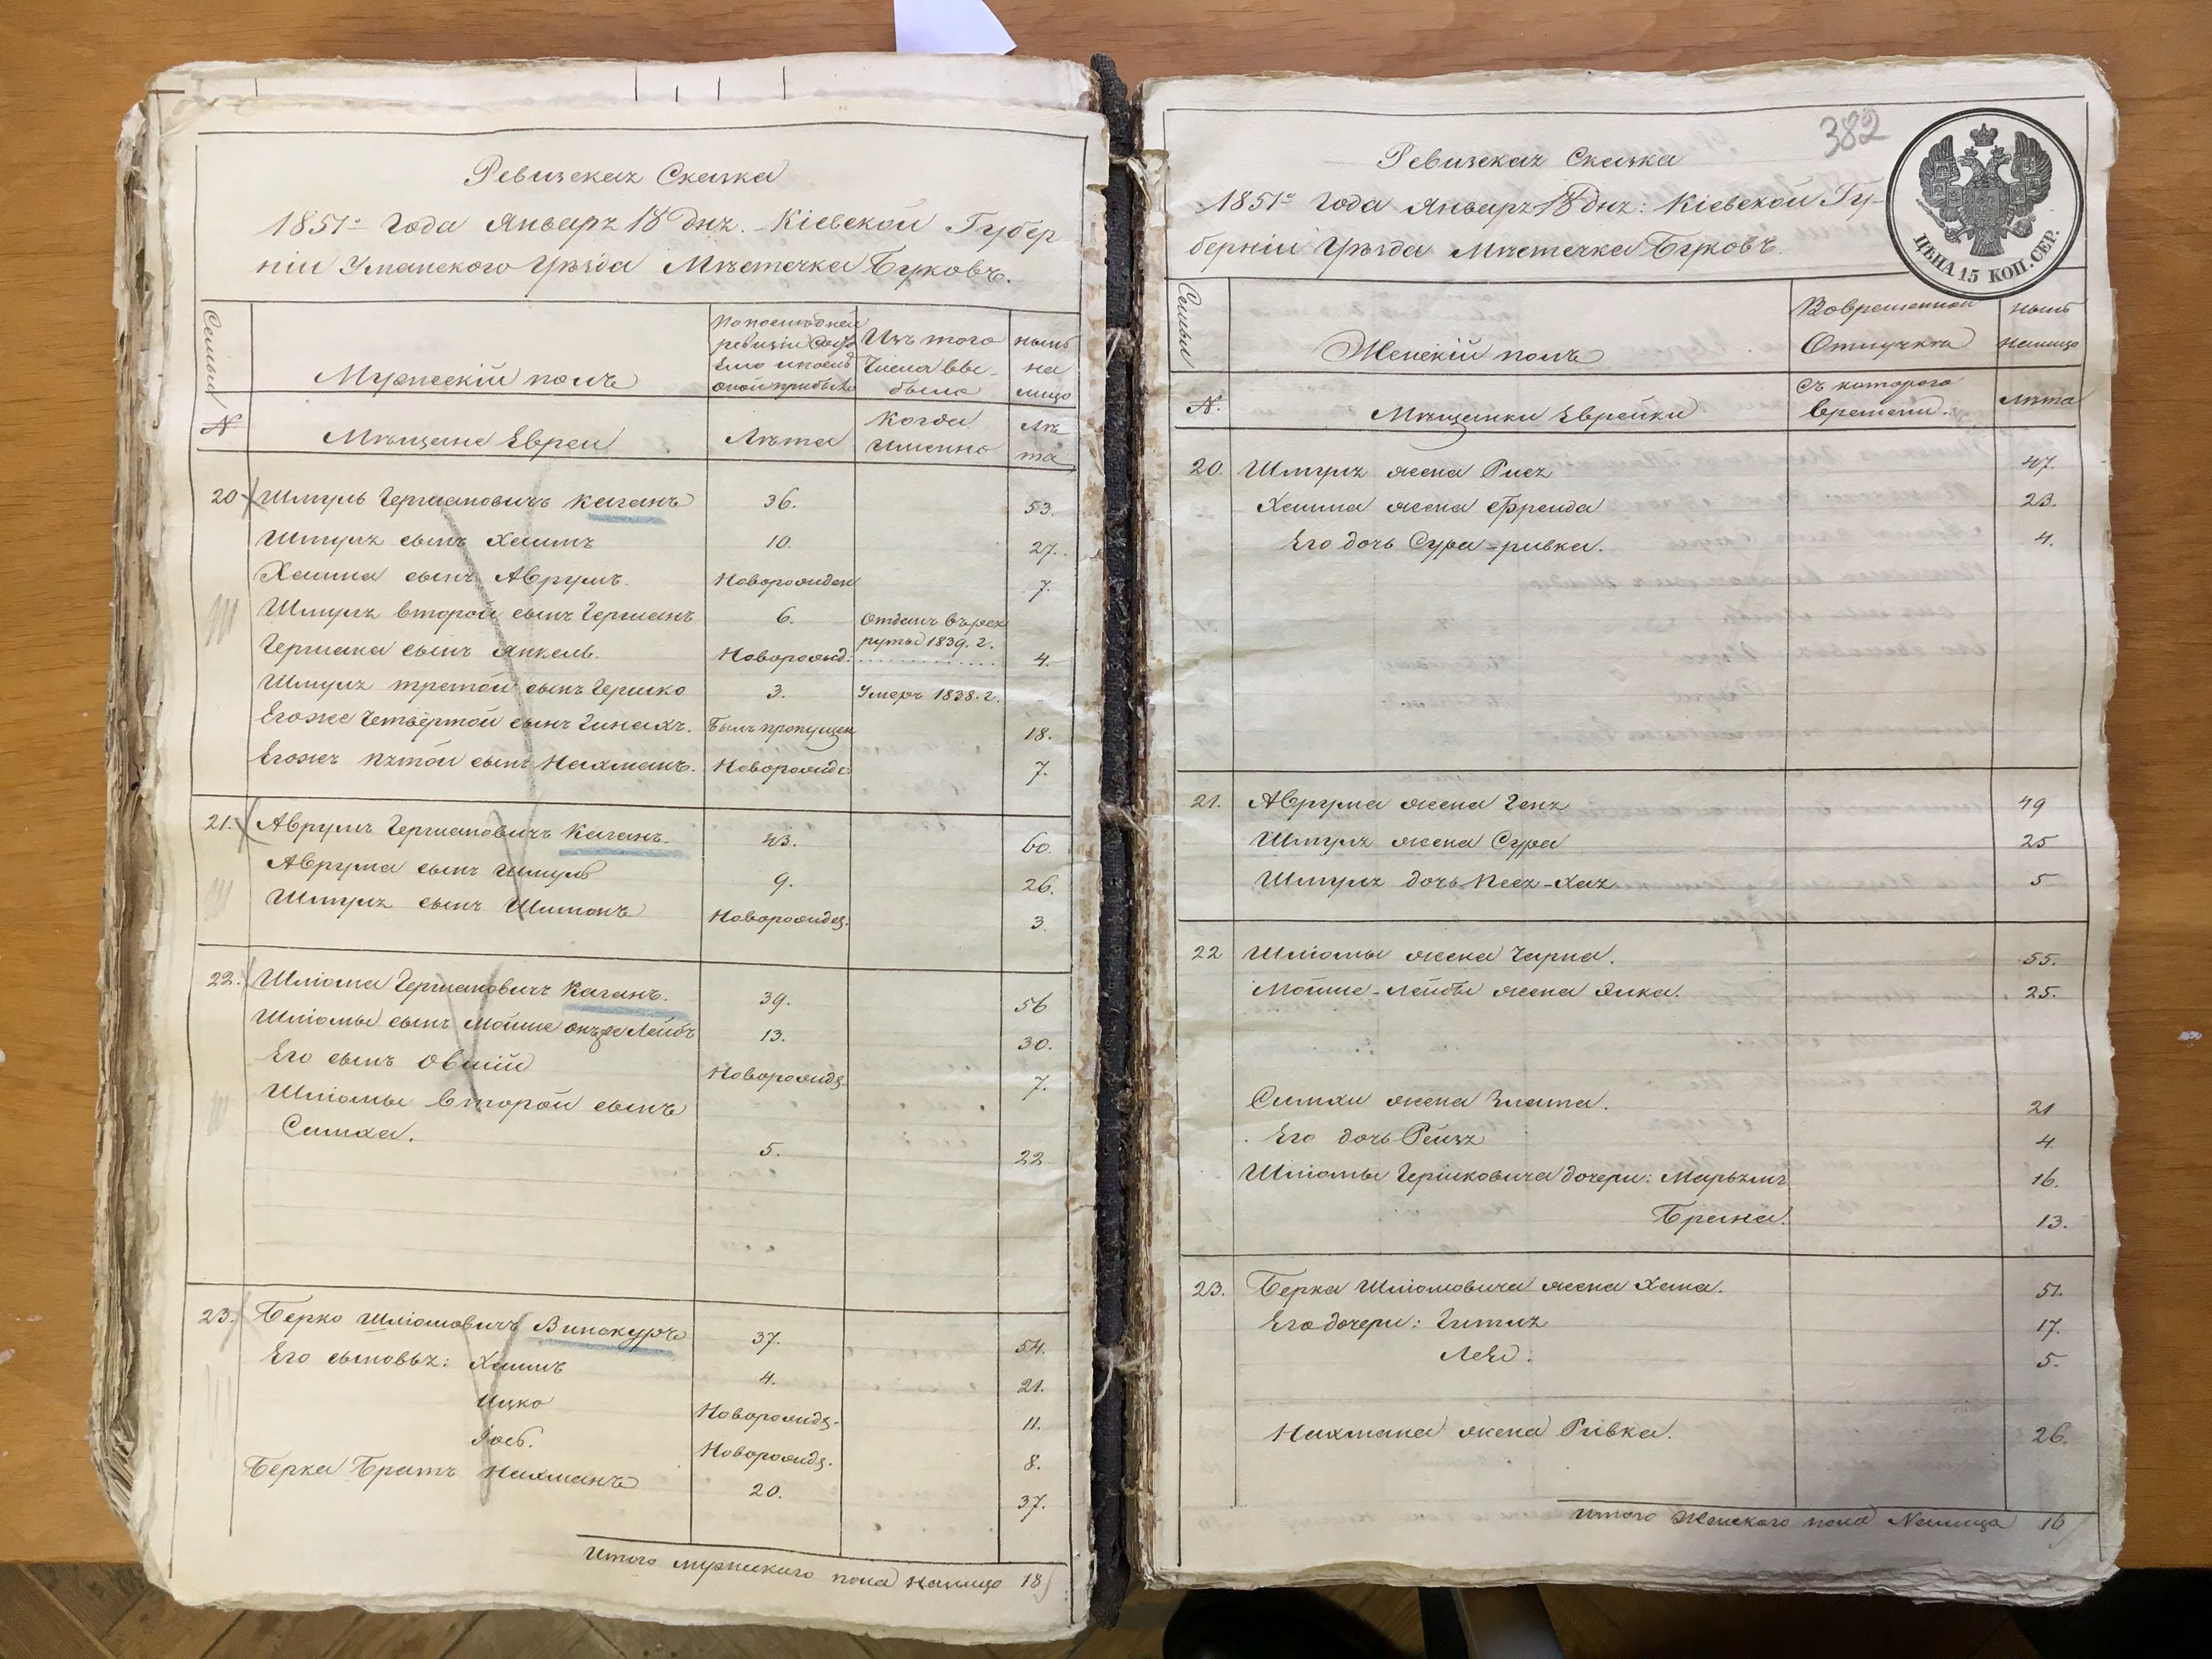 Ревизская Сказка
1851го Года Января 18 дня. Кіевской Губер
ніи Уманского Уѣзда Мѣстечка Буковъ.
Семьи
Мужескій полъ
По последней
ревизіи состо
яло и послѣ
оной прибыло
Изъ того
Числа вы-
было
нынѣ
на
лицо
№
Мѣщане Евреи
Лѣта
Когда
Именно
Лѣ
та
20 Шмуль Гершановичъ Каганъ 36. 53.
Шмуля сынъ Хаимъ 10. 27.
Хаима сынъ Аврумъ. Новорожден 7.
Шмуля второй сынъ Гершанъ 6. Отданъ въ рек
руты 1839. г.
Гершана сынъ Янкель. Новорожд: 4.
Шмуля третой сынъ Гершко 3. Умеръ 1838. г.
Егоже Четвёртой сынъ Пинахъ. Былъ пропущен 18.
Егожъ пятой сынъ Нахманъ. Новорожд: 7.
21. Аврумъ Гершановичъ Каганъ. 43. 60.
Аврума сынъ Шмуль 9. 26.
Шмуля сынъ Шимонъ Новорожд. 3.
22. Шліома Гершановичъ Каганъ. 39. 56
Шліомы сынъ Мойше онъже Лейбъ 13. 30.
Его сынъ Овшій Новорожд. 7.
Шліомы второй сынъ
Симха. 5. 22
23. Берко Шліомовичъ Винокуръ 37. 54.
Его сыновья: Хаимъ 4. 21.
Ицко Новорожд. 11.
Іось. Новорожд. 8.
Берка Братъ Нахманъ 20. 37.
Итого мужескаго пола налицо 18
382
Ревизская Сказка
1851го Года Января 18 дня: Кіевской Гу-
берніи Уѣзда Мѣстечка Буковъ.
ЦѢНА 15 КОП. СЕР.
Семьи
Женскій полъ
Вовременной
Отлучкѣ
нынѣ
налицо
№.
Мѣщанки Еврейки
Съ которого
Времени.
Лѣта
20. Шмуля жена Рися 47.
Хаима жена Фрейда 23.
Его дочь Сура-ривка. 4.
21. Аврума жена Геня 49
Шмуля жена Сура 25
Шмуля дочь Песя-Хая 5
22 Шліомы жена Чарна. 55.
Мойше-Лейбы жена Элка. 25.
Симхи жена Злата. 21
Его дочь Рейзя 4.
Шліомы Гершковича дочери: Марьямъ 16.
Брана. 13.
23. Берка Шліомовича жена Хана. 51.
Его дочери: Гития 17.
Лея. 5.
Нахмана жена Ривка. 26.
Итого Женского пола Налицо 16